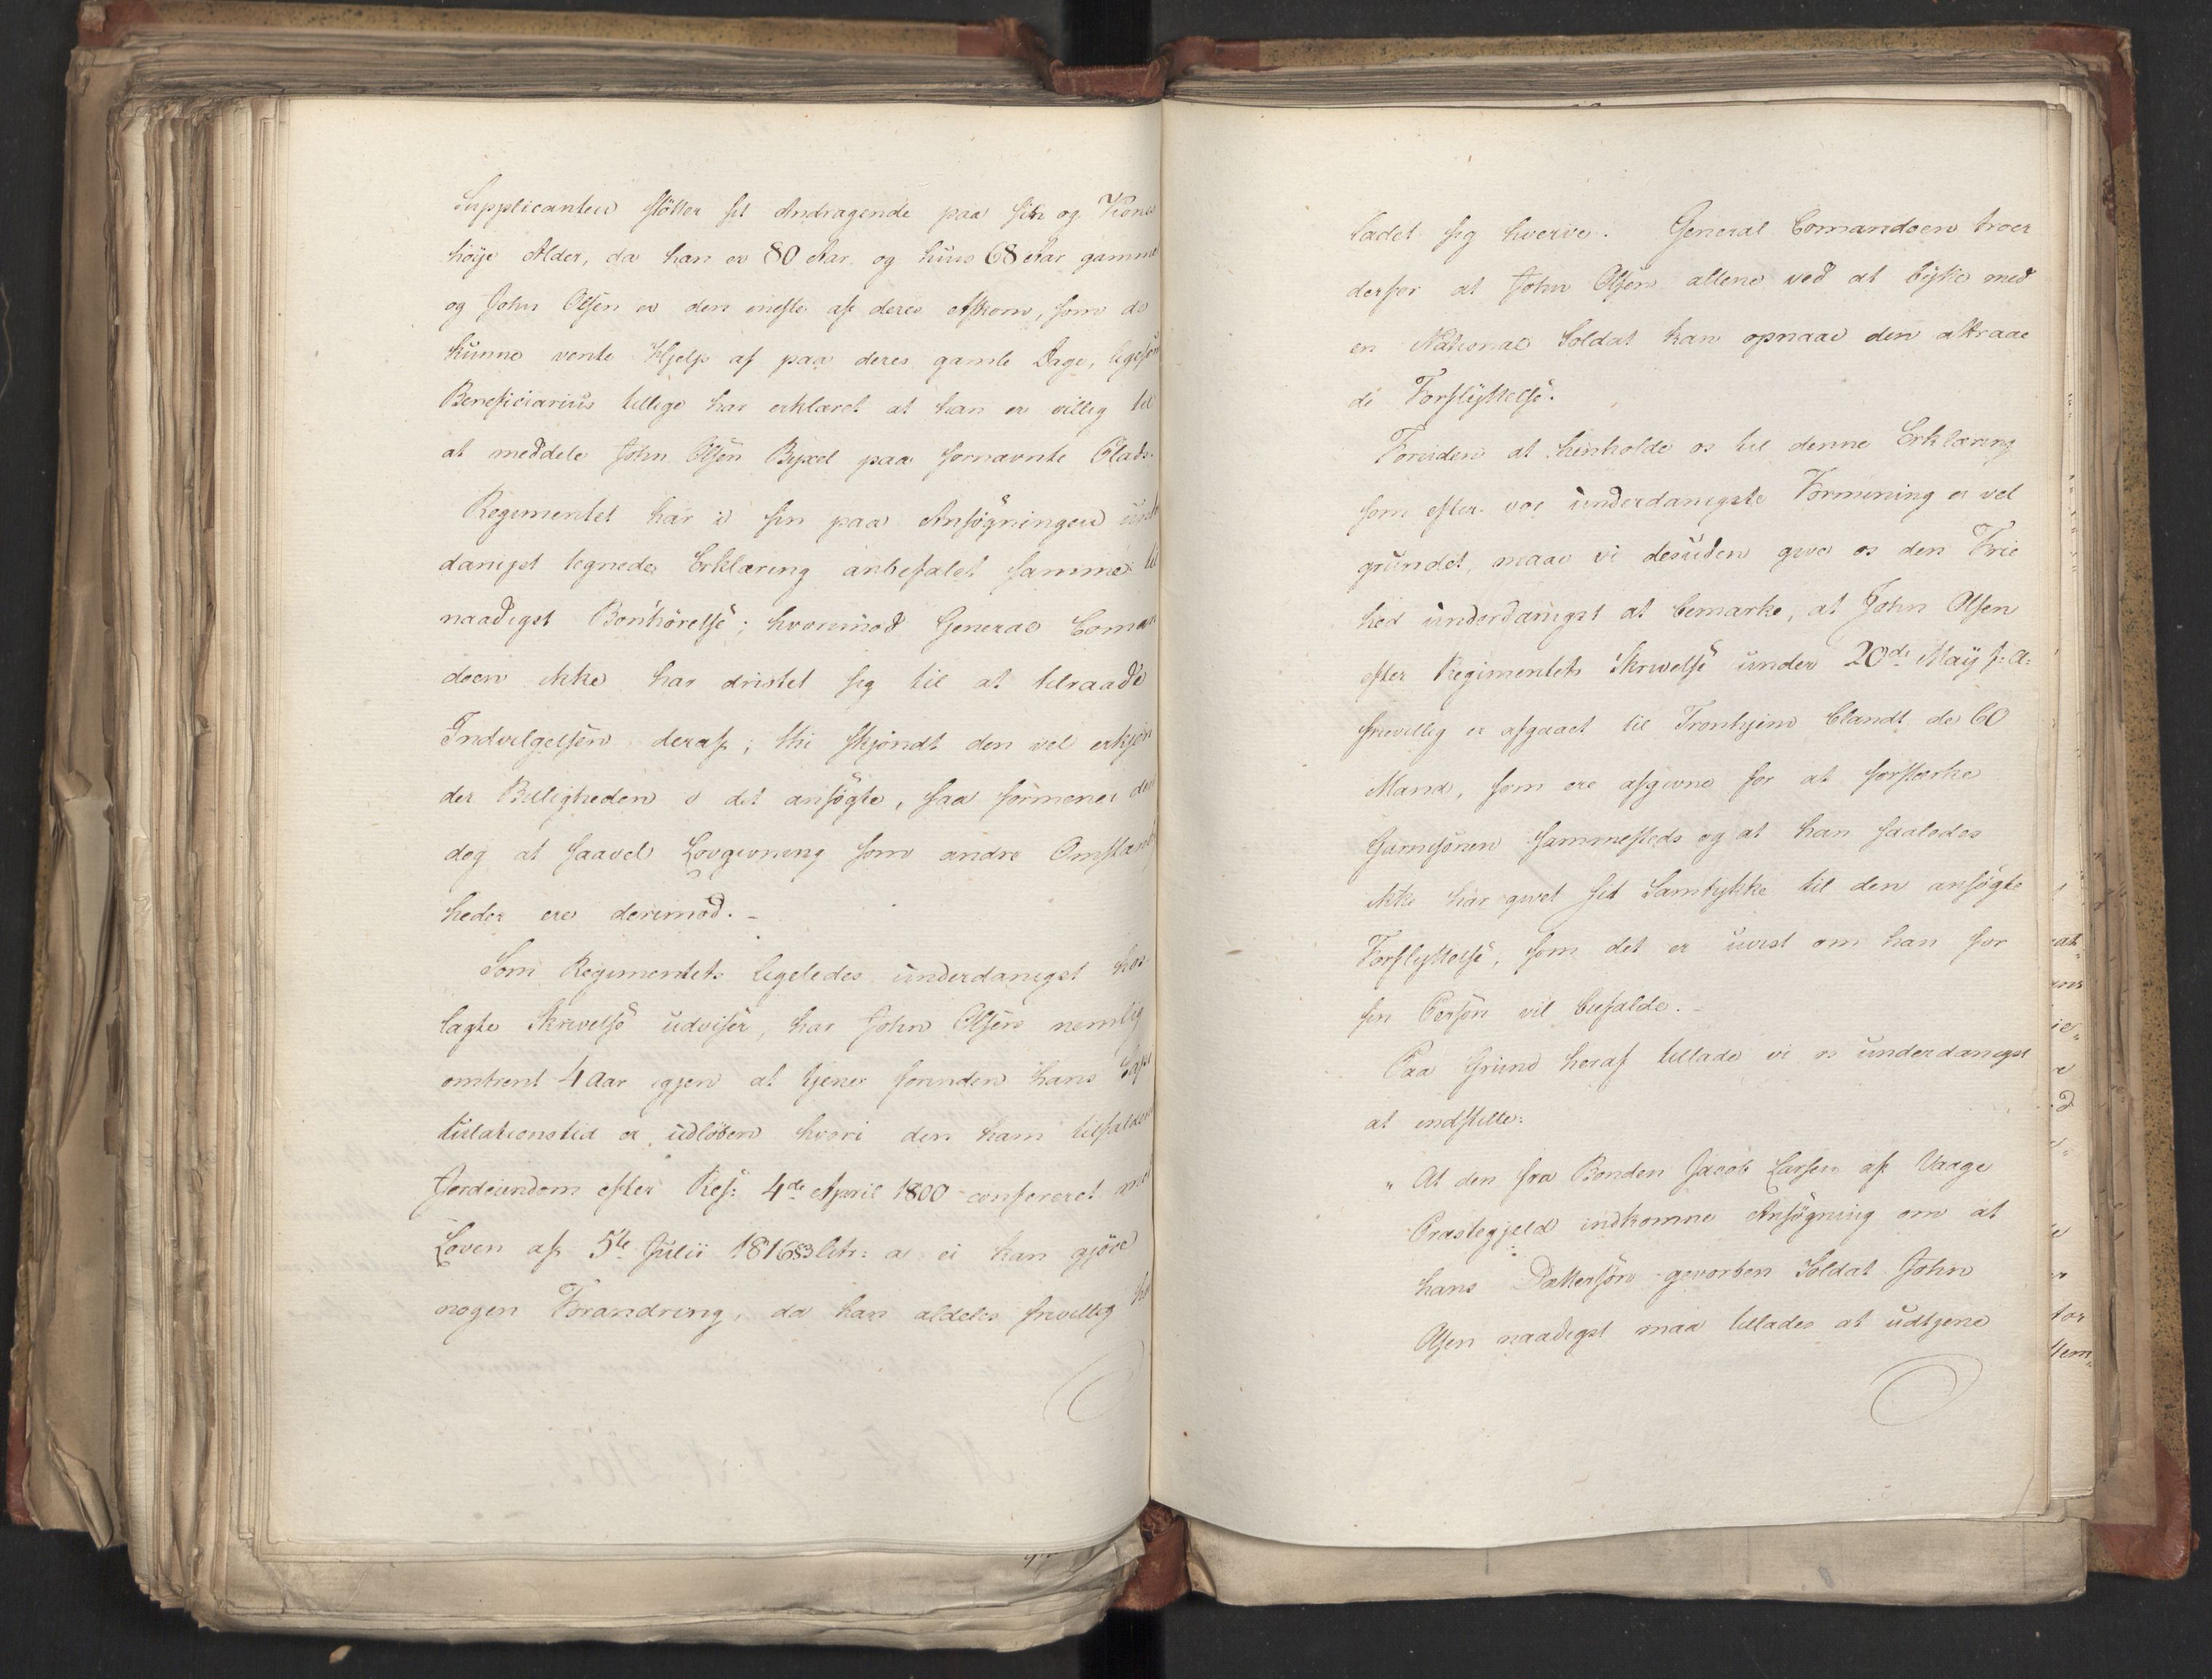 Supplicanten støtter sit Andragende paa sin og Kones
høye Alder, da han er 80 Aar og hun 68 Aar gammel
og John Olsen er den eneste af deres Afkom, som de
kunne vente Hjelp af paa deres gamle Dage, ligesom
Beneficiarius tillige har erklæret at han er villig til
at meddele John Olsen Byxel paa fornævnte Plads.
Regimentet har i sin paa Ansøgningen under
danigst tegnede Erklæring anbefalet samme til
naadigst Bønhørelse; hvorimod General Coman
doen ikke har dristet sig til at tilraade
Indvilgelsen deraf; thi skjøndt den vel erkjen
der Billigheden i det ansøgte, saa formener den
dog at saavel Lovgivning som andre Omstændig
heder ere derimod. –
Som Regimentets ligeledes underdanigst hos
lagte Skrivelse udviser, har John Olsen nemlig
omtrent 4 Aar igjen at tjene forinden hans Capi
tulationstid er udløben hvori den ham tilfaldne
Jordeiendom efter Res: 4de April 1800 confereret med
Loven af 5te Julii 1816 § 83 litr: a ei kan gjøre
nogen Forandring, da han aldeles frivillig har
ladet sig hverve. General Comandoen troer
derfor at John Olsen allene ved at bytte med
en National Soldat kan opnaae den attraae
de Forflyttelse.
Foruden at henholde os til denne Erklæring
som efter vor underdanigste Formening er vel
grundet, maae vi desuden give os den Frie
hed underdanigst at bemærke, at John Olsen
efter Regimentets Skrivelse under 20de Maÿ f: A:
frivillig er afgaaet til Tronhjem blandt de 60
Mand, som ere afgivne for at forstærke
Garnisonen sammesteds og at han saaledes
ikke har givet sit Samtykke til den ansøgte
Forflyttelse, som det er uvist om han for
sin Person vil bifalde. –
Paa Grund heraf tillade vi os underdanigst
at indstille:
" At den fra Bonden Jacob Larsen af Vaage
Præstegjeld indkomne Ansøgning om at
hans Dattersøn gevorben Soldat John
Olsen naadigst maa tillades at udtjene